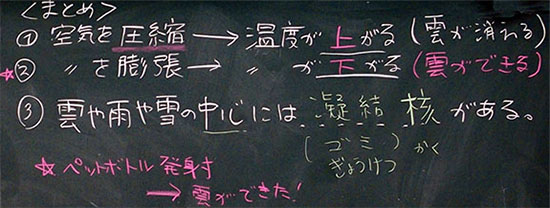 ＜まとめ＞
① 空気を圧縮 → 温度が 上がる (雲が消える)
☆② 〃 を膨張 → 〃 が 下がる (雲ができる)
③ 雲や雨や雪の中心には 凝結核がある。
(ゴミ) かく
ぎょうけつ
☆ ペットボトル発射
→ 雲ができた!